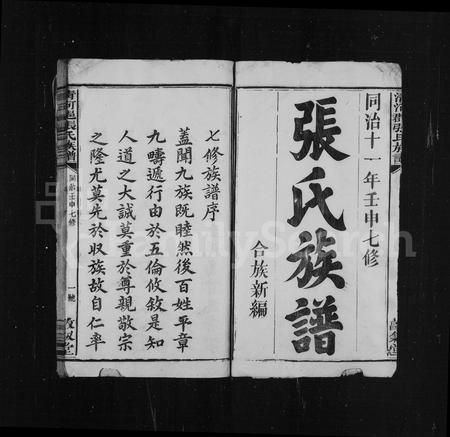 同治十一年壬申七修
張氏族譜
合族新編
七修族譜序
蓋聞九族既睦然後百姓平章
九疇遞行由於五倫攸敘是知
人道之大誠莫重於尊親敬宗
之隆尤莫先於収族故自仁率
清河郡張氏族譜
同治壬申七修
一號
敦敘堂
FamilySearch